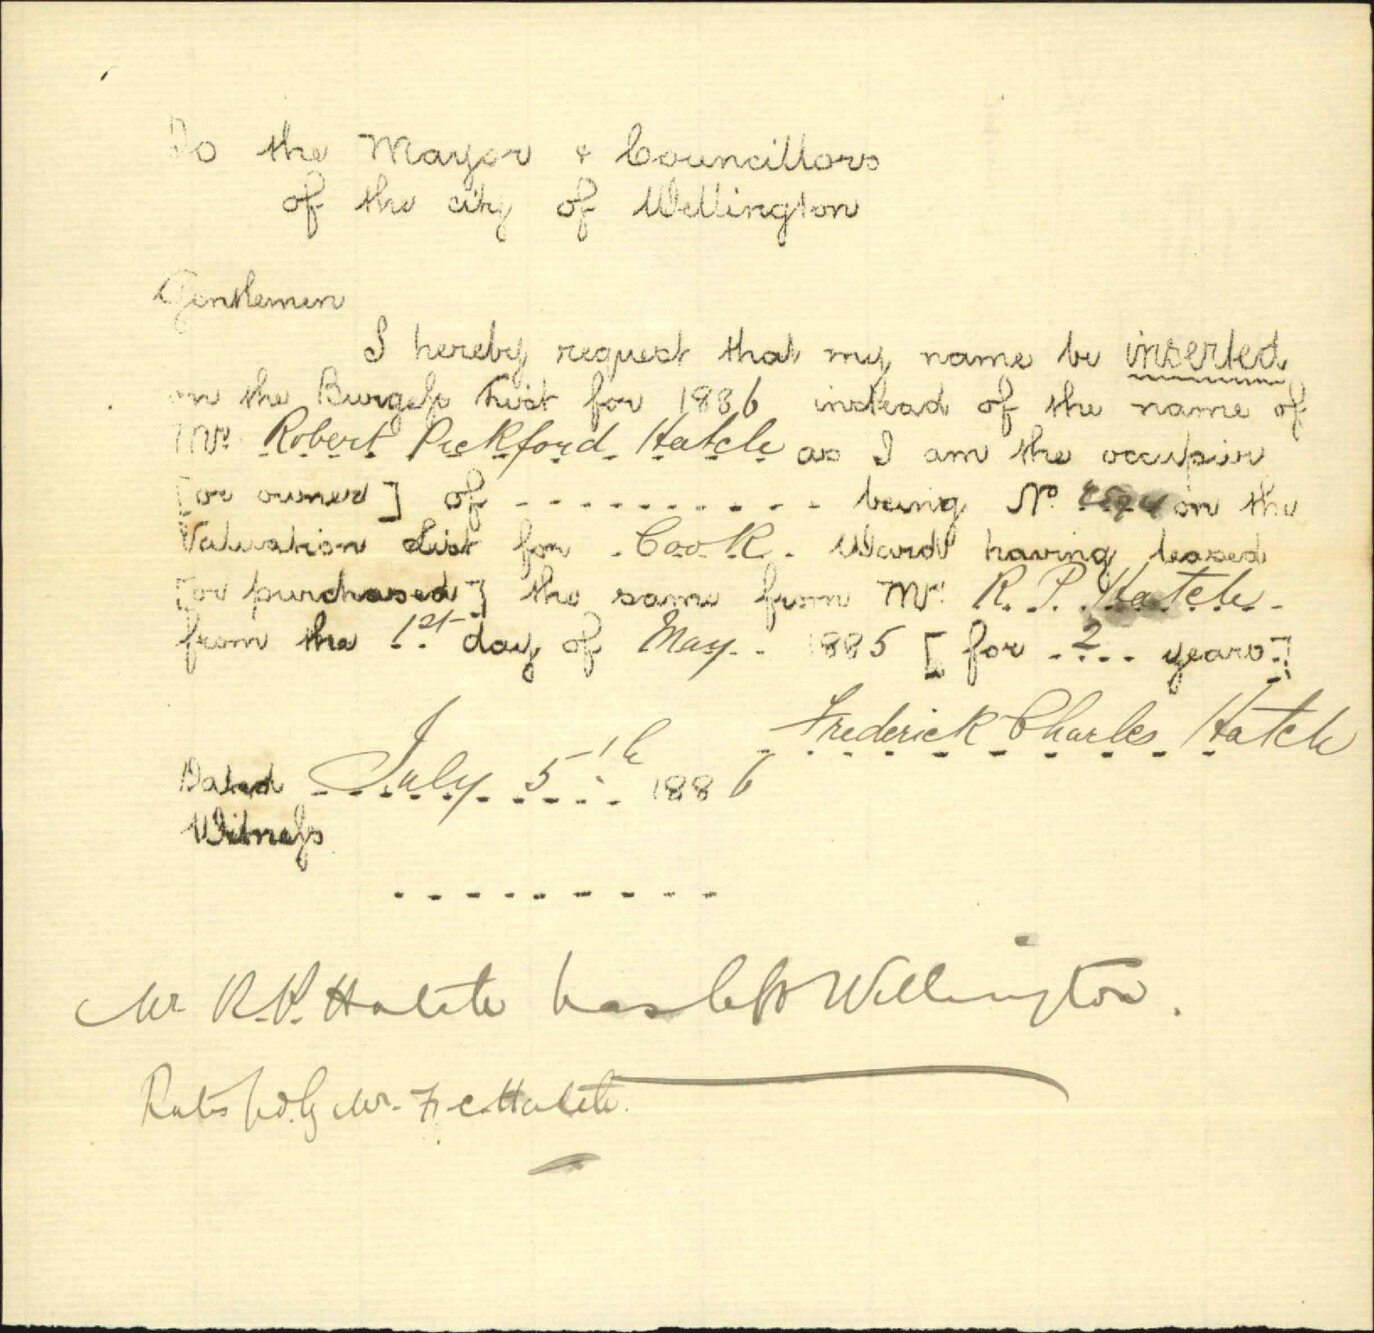 To the Mayor & Councillors
of the city of Wellington
Gentlemen
I hereby request that my name be inserted
on the Burgess List for 1886 instead of the name of
Mr. Robert Pickford Hatch as I am the occupier
[or owner] of - - - - - - - - - - - being No. on the
Valuation List for Cook. Ward having leased
[or purchased] the same from Mr. R. P. Hatch
from the 1st day of May 1885 [for 2 years.]
Frederick Charles Hatch
Dated July 5th 1886
Witness
- - - - - - - - -
Mr R.P. Hatch has left Wellington.
Rates pd. by Mr. F. C. Hatch.